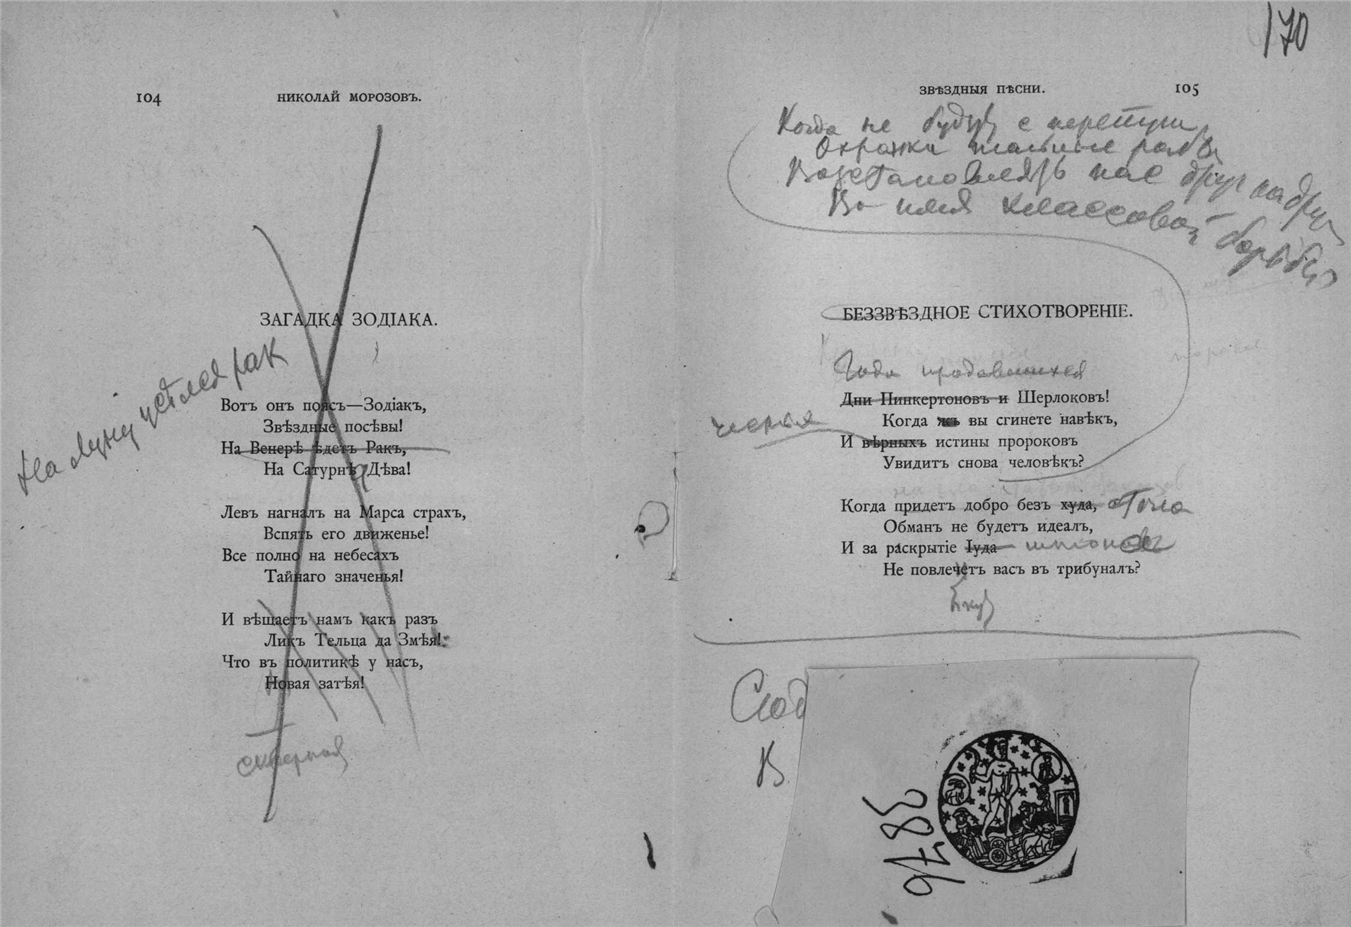 104
НИКОЛАЙ МОРОЗОВЪ.
ЗАГАДКА ЗОДІАКА.
На луну усѣлся рак
Вотъ онъ поясъ—Зодіакъ,
Звѣздные посѣвы!
На Венерѣ ѣдетъ Ракъ,
На Сатурнѣ Дѣва!
Левъ нагналъ на Марса страхъ,
Вспять его движенье!
Все полно на небесахъ
Тайнаго значенья!
И вѣщаетъ намъ какъ разъ
Ликъ Тельца да Змѣя!
Что въ политикѣ у насъ,
Новая затѣя!
скверная
170
ЗВѢЗДНЫЯ ПѢСНИ.
105
Когда не будут с
Охранки тайные рабы
нас друг на друга
Во имя классовой борьбы
БЕЗЗВѢЗДНОЕ СТИХОТВОРЕНІЕ.
Года продавшихся
Дни Пинкертоновъ и Шерлоковъ!
Когда вы сгинете навѣкъ,
И вѣрныхъ истины пророковъ
Увидитъ снова человѣкъ?
Когда придетъ добро безъ худа,
Обманъ не будетъ идеалъ,
И за раскрытіе Іуда
Не повлечетъ васъ въ трибуналъ?
В
9786